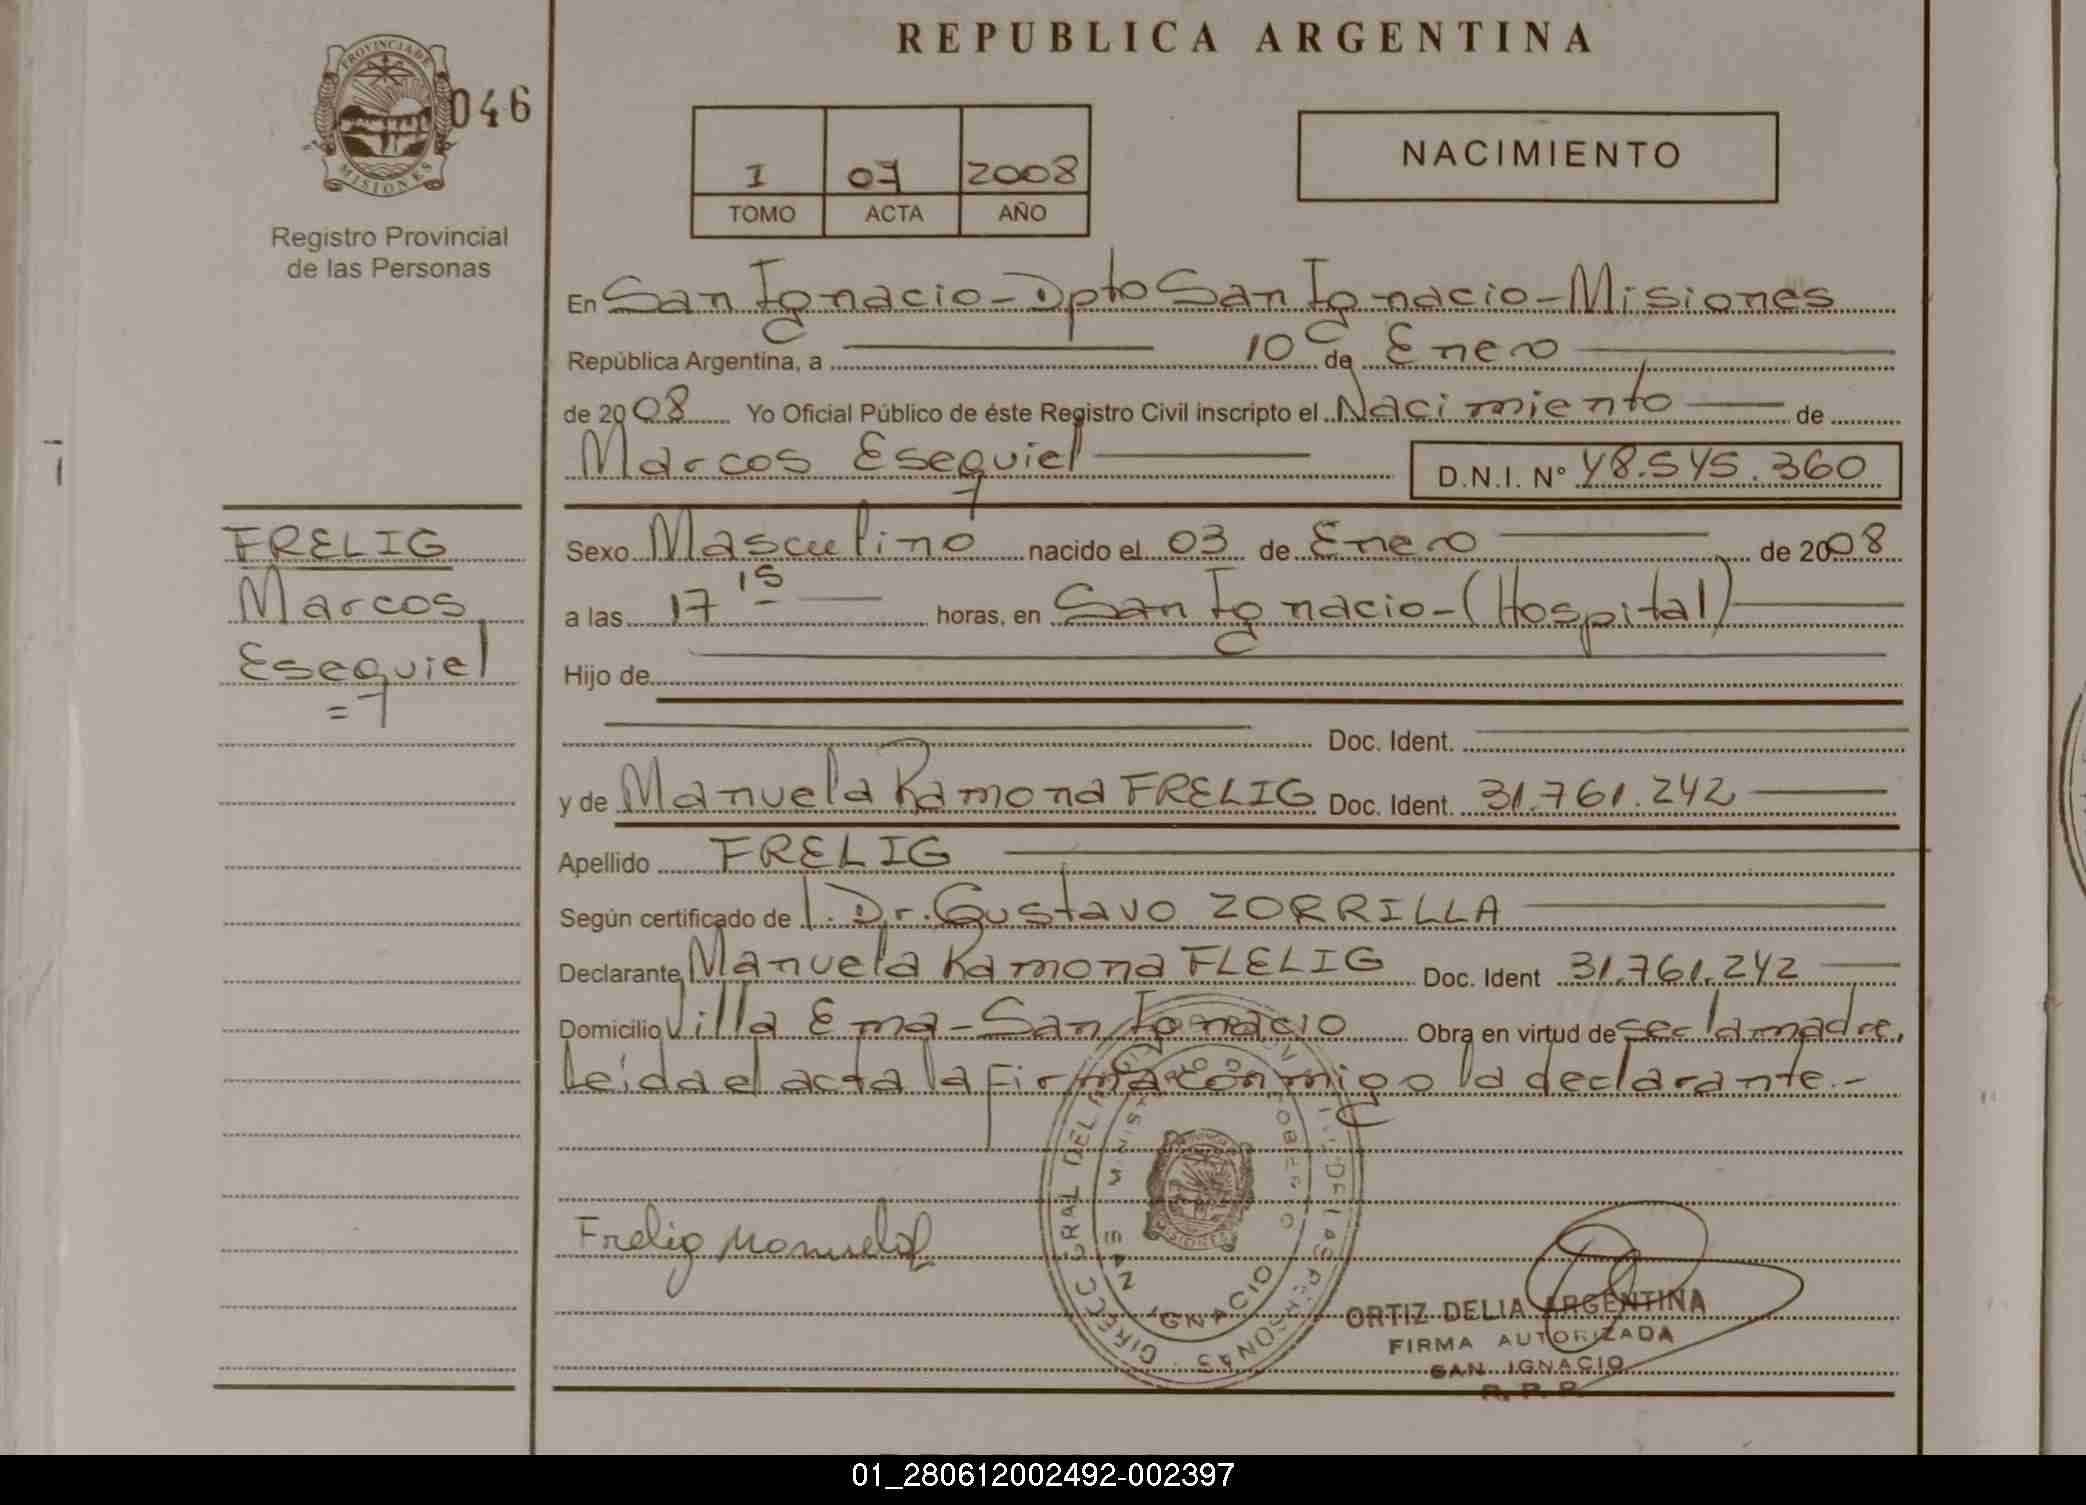 REPUBLICA ARGENTINA
PROVINCIA DE
MISIONES
046
Registro Provincial
de las Personas
I 07 2008
TOMO ACTA AÑO
NACIMIENTO
En San Ignacio - Dpto San Ignacio - Misiones
República Argentina, a 10 de Enero
de 2008 Yo Oficial Público de éste Registro Civil inscripto el Nacimiento de
Marcos Esequiel D.N.I. Nº 48.545.360
FRELIG
Marcos
Esequiel =
Sexo Masculino nacido el 03 de Enero de 2008
a las 17 15 horas, en San Ignacio - (Hospital)
Hijo de
Doc. Ident.
y de Manuela Ramona FRELIG Doc. Ident. 31.761.242
Apellido FRELIG
Según certificado de l. Dr. Gustavo ZORRILLA
Declarante Manuela Ramona FLELIG Doc. Ident 31.761.242
Domicilio Villa Ema - San Ignacio Obra en virtud de ser la madre,
Leída el acta la firma conmigo la declarante.-
Frelig Manuela
DE LAS PERSONAS
SAN IGNACIO
ORTIZ DELIA ARGENTINA
FIRMA AUTORIZADA
SAN IGNACIO
R. P. P.
01_280612002492-002397